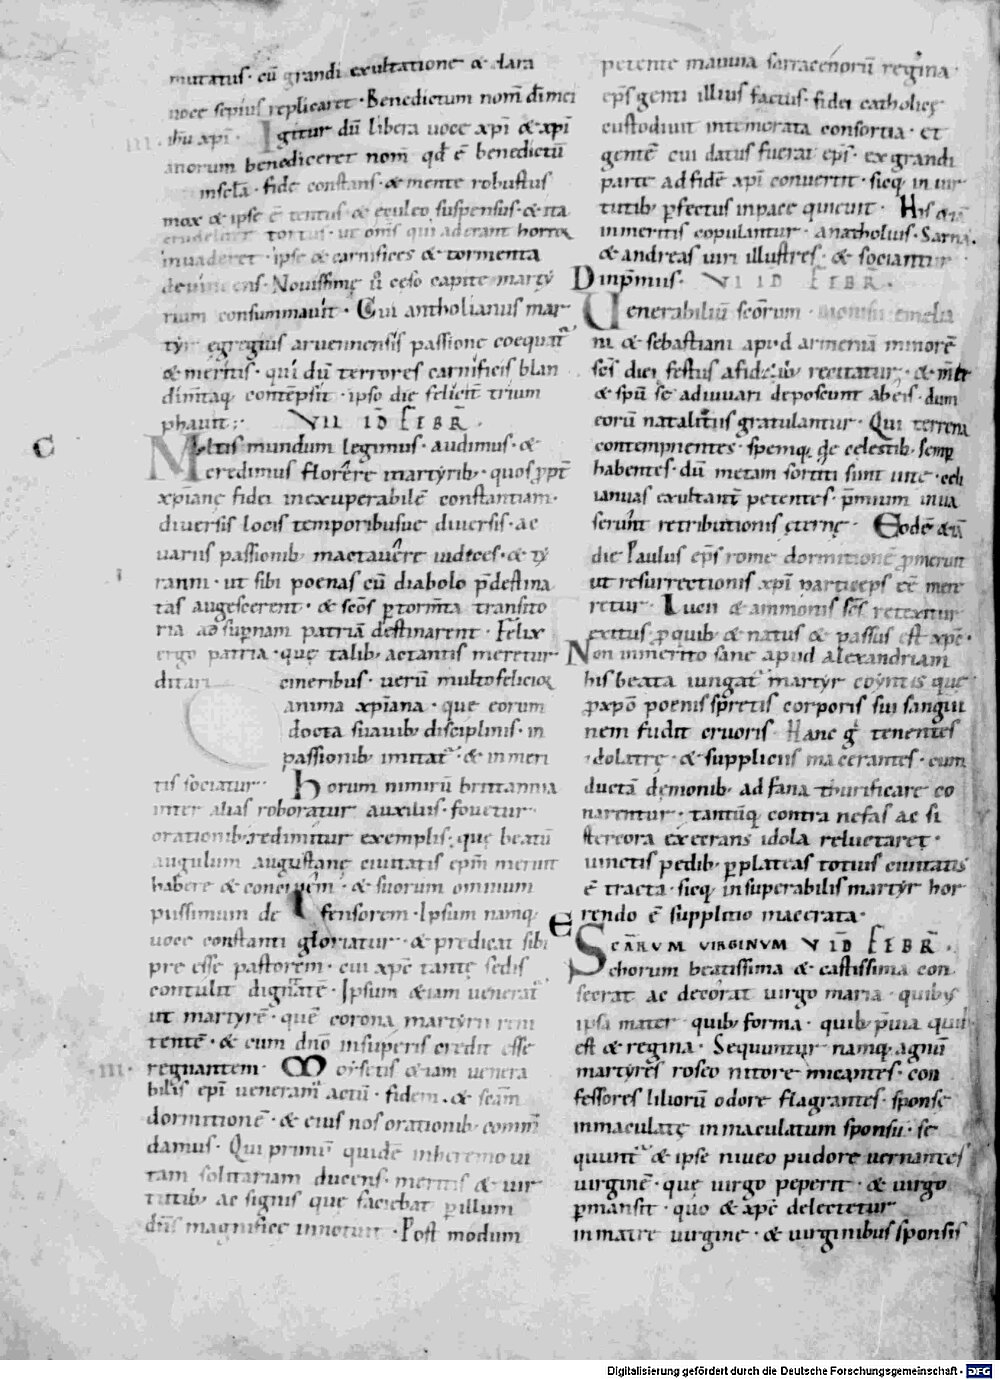 mutatus · cū grandi exultatione & clara
uoce sepius replicaret · Benedictum nom̄ dn̄i mei
ihū xp̄i · Igitur dū libera uoce xp̄i & xp̄i
anorum benediceret nom̄ qd̄ ē benedictū
in sc̄la · fide constans · & mente robustus
mox & ipse ē tentus & eculeo suspensus · & ita
crudeliter tortus · ut om̄s qui aderant horror
inuaderet · ipse & carnifices & tormenta
deuincens · Nouissimę ū ceso capite marty
rium consummauit · Cui antholianus mar
tyr egregius aruennensis passione coequat᷑
& meritis · qui dū terrores carnificis blan
dim̄taq; contēpsit · ipso die felicit̄ trium
phauit ; · VII ID FEBR̄ ·
C
Multis mundum legimus · audimus · &
credimus florere martyrib; · quos ꝓpt̄
xp̄ianę fidei inexuperabilē constantiam ·
diuersis locis temporibusue diuersis · ac
uariis passionib; mactauere iudices · & ty
ranni · ut sibi poenas cū diabolo p̄destina
tas augescerent · & sc̄os ꝑ torm̄ta transito
ria ad suꝑnam patriā destinarent · Felix
ergo patria · quę talib; aetantis meretur
ditari cineribus · uerū multo felicior
anima xp̄iana · quę eorum
docta suauib; disciplinis · in
passionib; imitat᷑ · & in meri
tis sociatur · Horum nimirū brittannia
inter alias roboratur auxiliis · fouetur
orationib; redimitur exemplis · quę beatū
augulum augustanę ciuitatis ep̄m meruit
habere & conciuem · & suorum omnium
piissimum defensorem · Ipsum namq;
uoce constanti gloriatur · & predicat sibi
preesse pastorem · cui xp̄c tantę sedis
contulit dignitatē · Ipsum &iam uenerat᷑
ut martyrē · quē corona martyrii reni
tentē · & cum dn̄o in superis credit esse
regnantem · Moysetis &iam uenera
bilis ep̄i ueneram᷑ actū · fidem · & sc̄am
dormitionē · & eius nos orationib; comm̄
damus · Qui primū quidē in heremo ui
tam solitariam ducens · meritis & uir
tutib; ac signis quę faciebat ꝑ illum
dn̄s magnifice innotuit · Post modum
petente mauuia sarracenorū regina ·
ep̄s genti illius factus · fidei catholicę
custodiuit intemorata consortia · et
gentē cui datus fuerat ep̄s · ex grandi
parte ad fidē xp̄i conuertit · sicq; in uir
tutib; ꝑfectus in pace quieuit · His &iā
in meritis copulantur · anatholius · Sarna ·
& andreas uiri illustres · & sociantur
in p̄mius · VI ID FEBR̄ ·
Uenerabiliū sc̄orum monisii emelia
ni & sebastiani apud armeniā minorē
sc̄s diei festus a fidelib; recitatur · & m̄te
& spū se adiuuari deposcunt ab eis · dum
eorū natalitiis gratulantur · Qui terrena
contempnentes · spemq; de celestib; semp
habentes · dū metam sortiti sunt uite · celi
ianuas exultant̄ petentes · p̄mium inua
serunt retributionis ęternę · Eodē &iā
die Paulus ep̄s rome dormitionē ꝓmeruit
ut resurrectionis xp̄i particeps ēē mere
retur · Lucii & ammonis sc̄s retexitur
exitus ꝓ quib; & natus & passus est xp̄c ·
Non inmerito sane apud alexandriam
his beata iungat᷑ martyr coyntis quę
ꝓ xp̄o poenis spretis corporis sui sangui
nem fudit cruoris · Hanc g̊ tenentes
idolatrę · & suppliciis macerantes · cum
ductā demonib; ad fana thurificare co
narentur · tantūq; contra nefas ac si
stercora execrans idola reluctaret ·
uinctis pedib; ꝑ plateas totius ciuitatis
ē tracta · sicq; insuperabilis martyr hor
rendo ē supplitio macerata ·
SCARVM VIRGINVM V ID FEBR̄ ·
chorum beatissima & castissima con
secrat ac decorat uirgo maria · quib;
ipsa mater · quib; forma · quib; p̄uia quib;
est & regina · Sequuntur namq; agnū
martyres roseo nitore micantes · con
fessores liliorū odore flagrantes · sponse
inmaculatę inmaculatum sponsū · se
quunt᷑ & ipse niueo pudore uernantes
uirginē · quę uirgo peperit · & uirgo
ꝑmansit · quo & xp̄c delectetur
in matre uirgine · & uirginibus sponsis
Digitalisierung gefördert durch die Deutsche Forschungsgemeinschaft - DFG